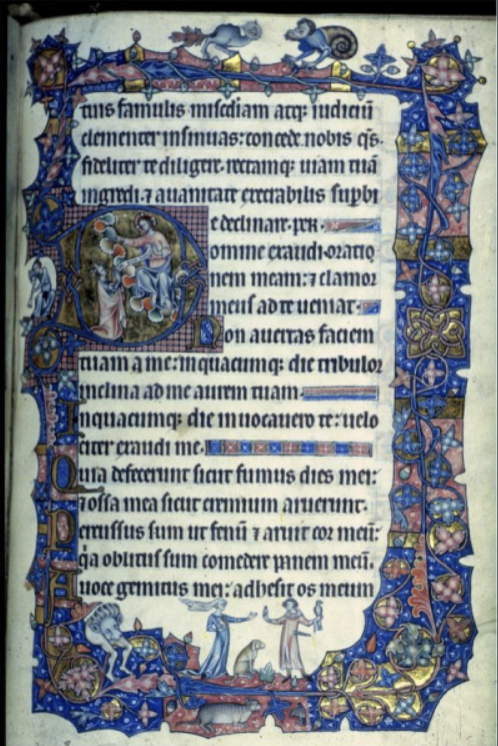 tuis famulis misediam atq; iudiciū
clementer insinuas: concede nobis q̄s.
fideliter te diligere. rectamq; uiam tuā
ingredi. ⁊ a uanitate execrabilis supbi
e declinare. per.
Domine exaudi oratio
nem meam: ⁊ clamor
meus ad te ueniat.
Non auertas faciem
tuam a me: in quacumq; die tribulor
inclina ad me aurem tuam.
In quacumq; die inuocauero te: uelo
citer exaudi me.
Quia defecerunt sicut fumus dies mei:
⁊ ossa mea sicut cremium aruerunt.
Percussus sum ut fenū ⁊ aruit cor meū:
q̇a oblitus sum comedere panem meū.
A uoce gemitus mei: adhesit os meum